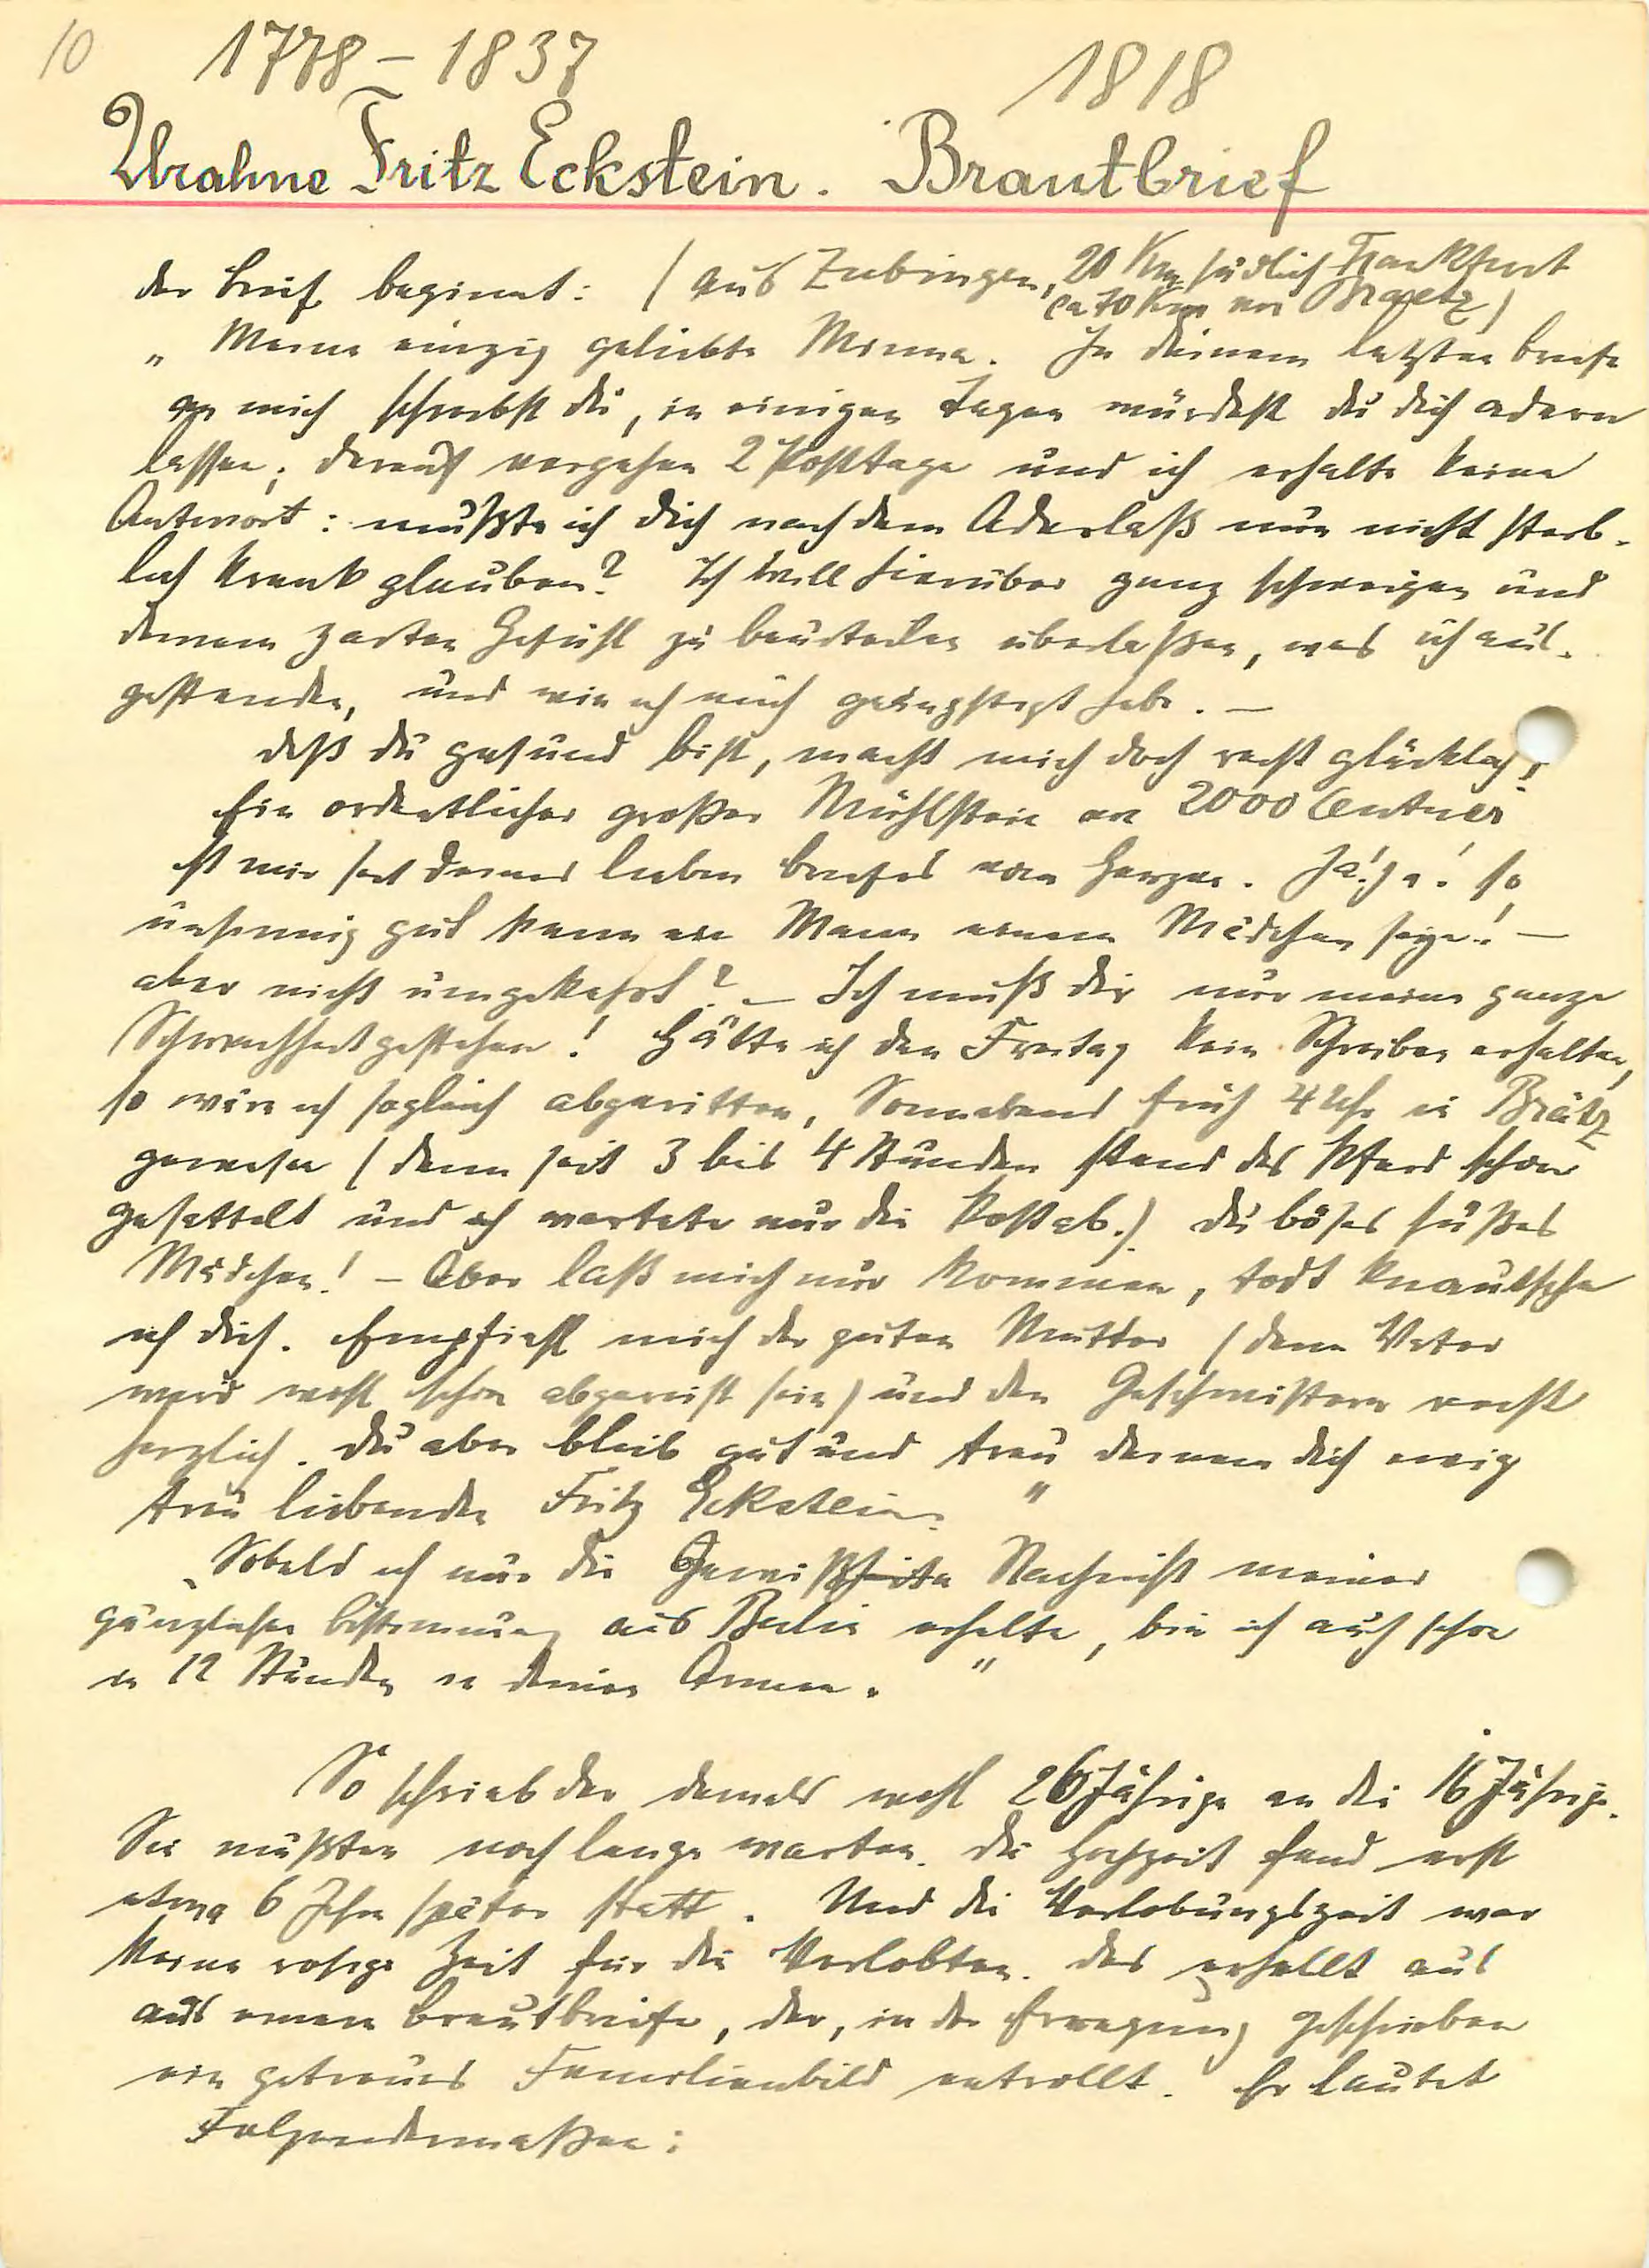 10 1778 – 1837 1818
Urahne Fritz Eckstein. Brautbrief
der Brief beginnt: (aus Zubingen, 20 Km südlich Frankfurt
ca 70 Km von Braetz)
„Meine einzig geliebte Minna. In deinem letzten Briefe
an mich schreibst du, in einigen Tagen würdest du dich adern
lassen; darauf vergehen 2 Posttage und ich erhalte keine
Antwort: mußte ich dich nach dem Aderlaß nun nicht sterb-
lich krank glauben? Ich will hierüber ganz schweigen und
deinem zarten Gefühl zu beurteilen überlaßen, was ich aus-
gestanden, und wie ich mich geängstigt habe. —
daß du gesund bist, macht mich doch recht glücklich!
Ein ordentlicher großer Mühlstein von 2000 Centner
ist mir seit deines lieben Briefes vom Herzen. Ja! Ja! so
unsinnig gut kann ein Mann einem Mädchen sein! —
aber nicht umgekehrt? — Ich muß dir nur meine ganze
Schwachheit gestehen! Hätte ich den Freitag kein Schreiben erhalten,
so wäre ich sogleich abgeritten, Sonnabend früh 4 Uhr in Brätz
gewesen (denn seit 3 bis 4 Stunden stand das Pferd schon
gesattelt und ich wartete nur die Post ab.) du böses süßes
Mädchen! – Aber laß mich nur kommen, todt knautsche
ich dich. Empfiehl mich der guten Mutter (denn Vater
wird wohl schon abgereist sein) und den Geschwistern recht
herzlich. Du aber bleib gut und treu deinem dich ewig
treu liebenden Fritz Eckstein."
„Sobald ich nur die Gewißheite Nachricht meiner
gänzlichen bestimmung aus Berlin erhalte, bin ich auch schon
in 12 Stunden in deinen Armen."
So schrieb der damals wohl 26 Jährige an die 16 Jährige.
Sie mußten noch lange warten. die Hochzeit fand erst
etwa 6 Jahre später statt. Und die Verlobungszeit war
keine rosige Zeit für die Verlobten. das erhellt aus
aus einem Brautbriefe, der, in der Erregung geschrieben
ein getreues Familienbild entrollt. Er lautet
Folgendermaßen: